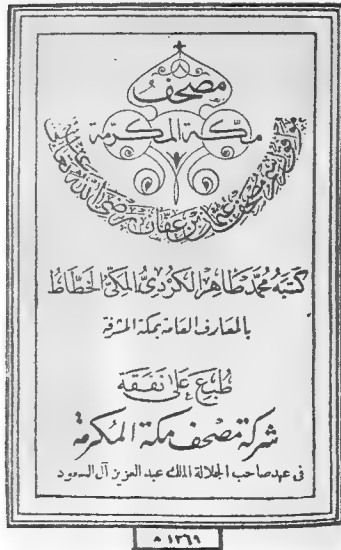 مصحف
مكة المكرمة
موافق لرسم مصحف عثمان بن عفان رضى الله تعالى عنه
كتبه محمد طاهر الكردى المكى الخطاط
بالمعارف العامة بمكة المشرفة
طبع على نفقة
شركة مصحف مكة المكرمة
فى عهد صاحب الجلالة الملك عبد العزيز آل السعود
١٣٦٩ ه